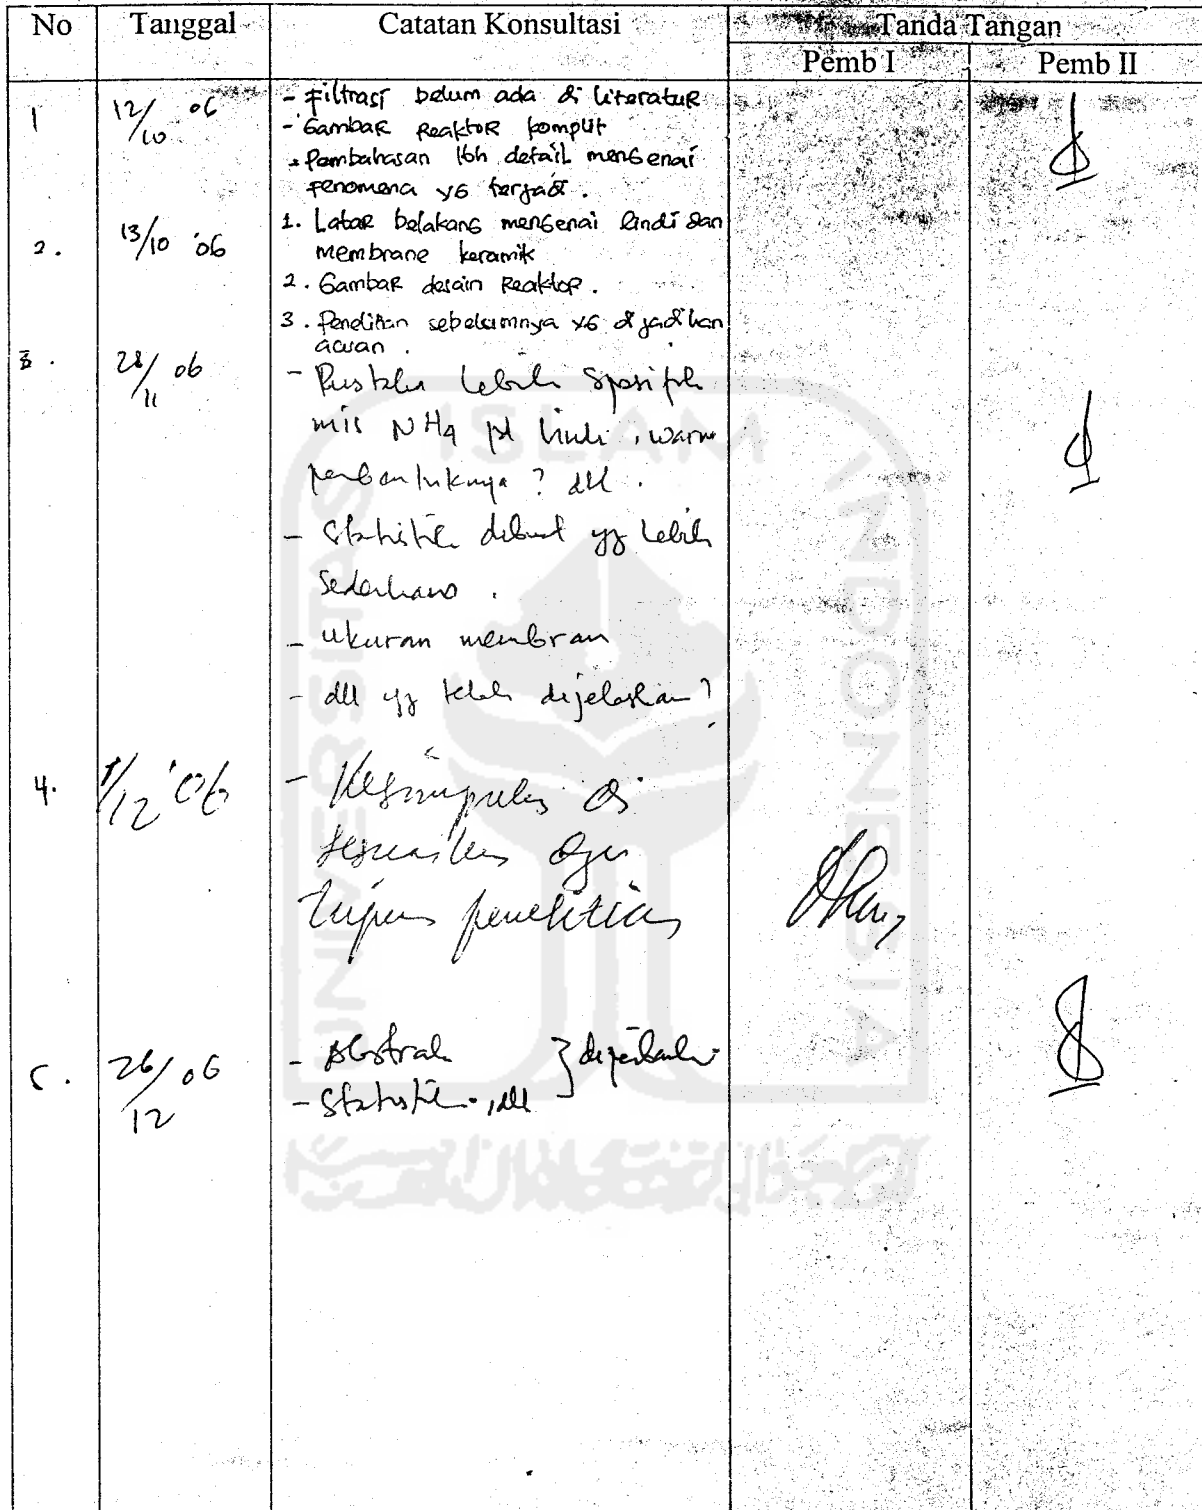 No Tanggal Catatan Konsultasi Tanda Tangan
Pemb I Pemb II
1 12/10 06 - Filtrasi belum ada di literatur
- Gambar Reaktor komput
- Pembahasan lbh detail mengenai
fenomena yg terjadi.
2. 13/10 '06 1. Latar belakang mengenai lindi dan
membrane keramik
2. Gambar desain Reaktor.
3. Penelitian sebelumnya yg dijadikan
acuan.
3. 28/11 06 - Pustaka lebih spesifik
mis NH4 pd lindi, warna
pembentuknya? dll.
- Statistik dibuat yg lebih
sederhana.
- ukuran membran
- dll yg telah dijelaskan?
4. 1/12 '06 - Kesimpulan di
sesuaikan dgn
tujuan penelitian
5. 26/12 06 - Abstrak } diperbaiki
- Statistik, dll
UNIVERSITAS ISLAM INDONESIA